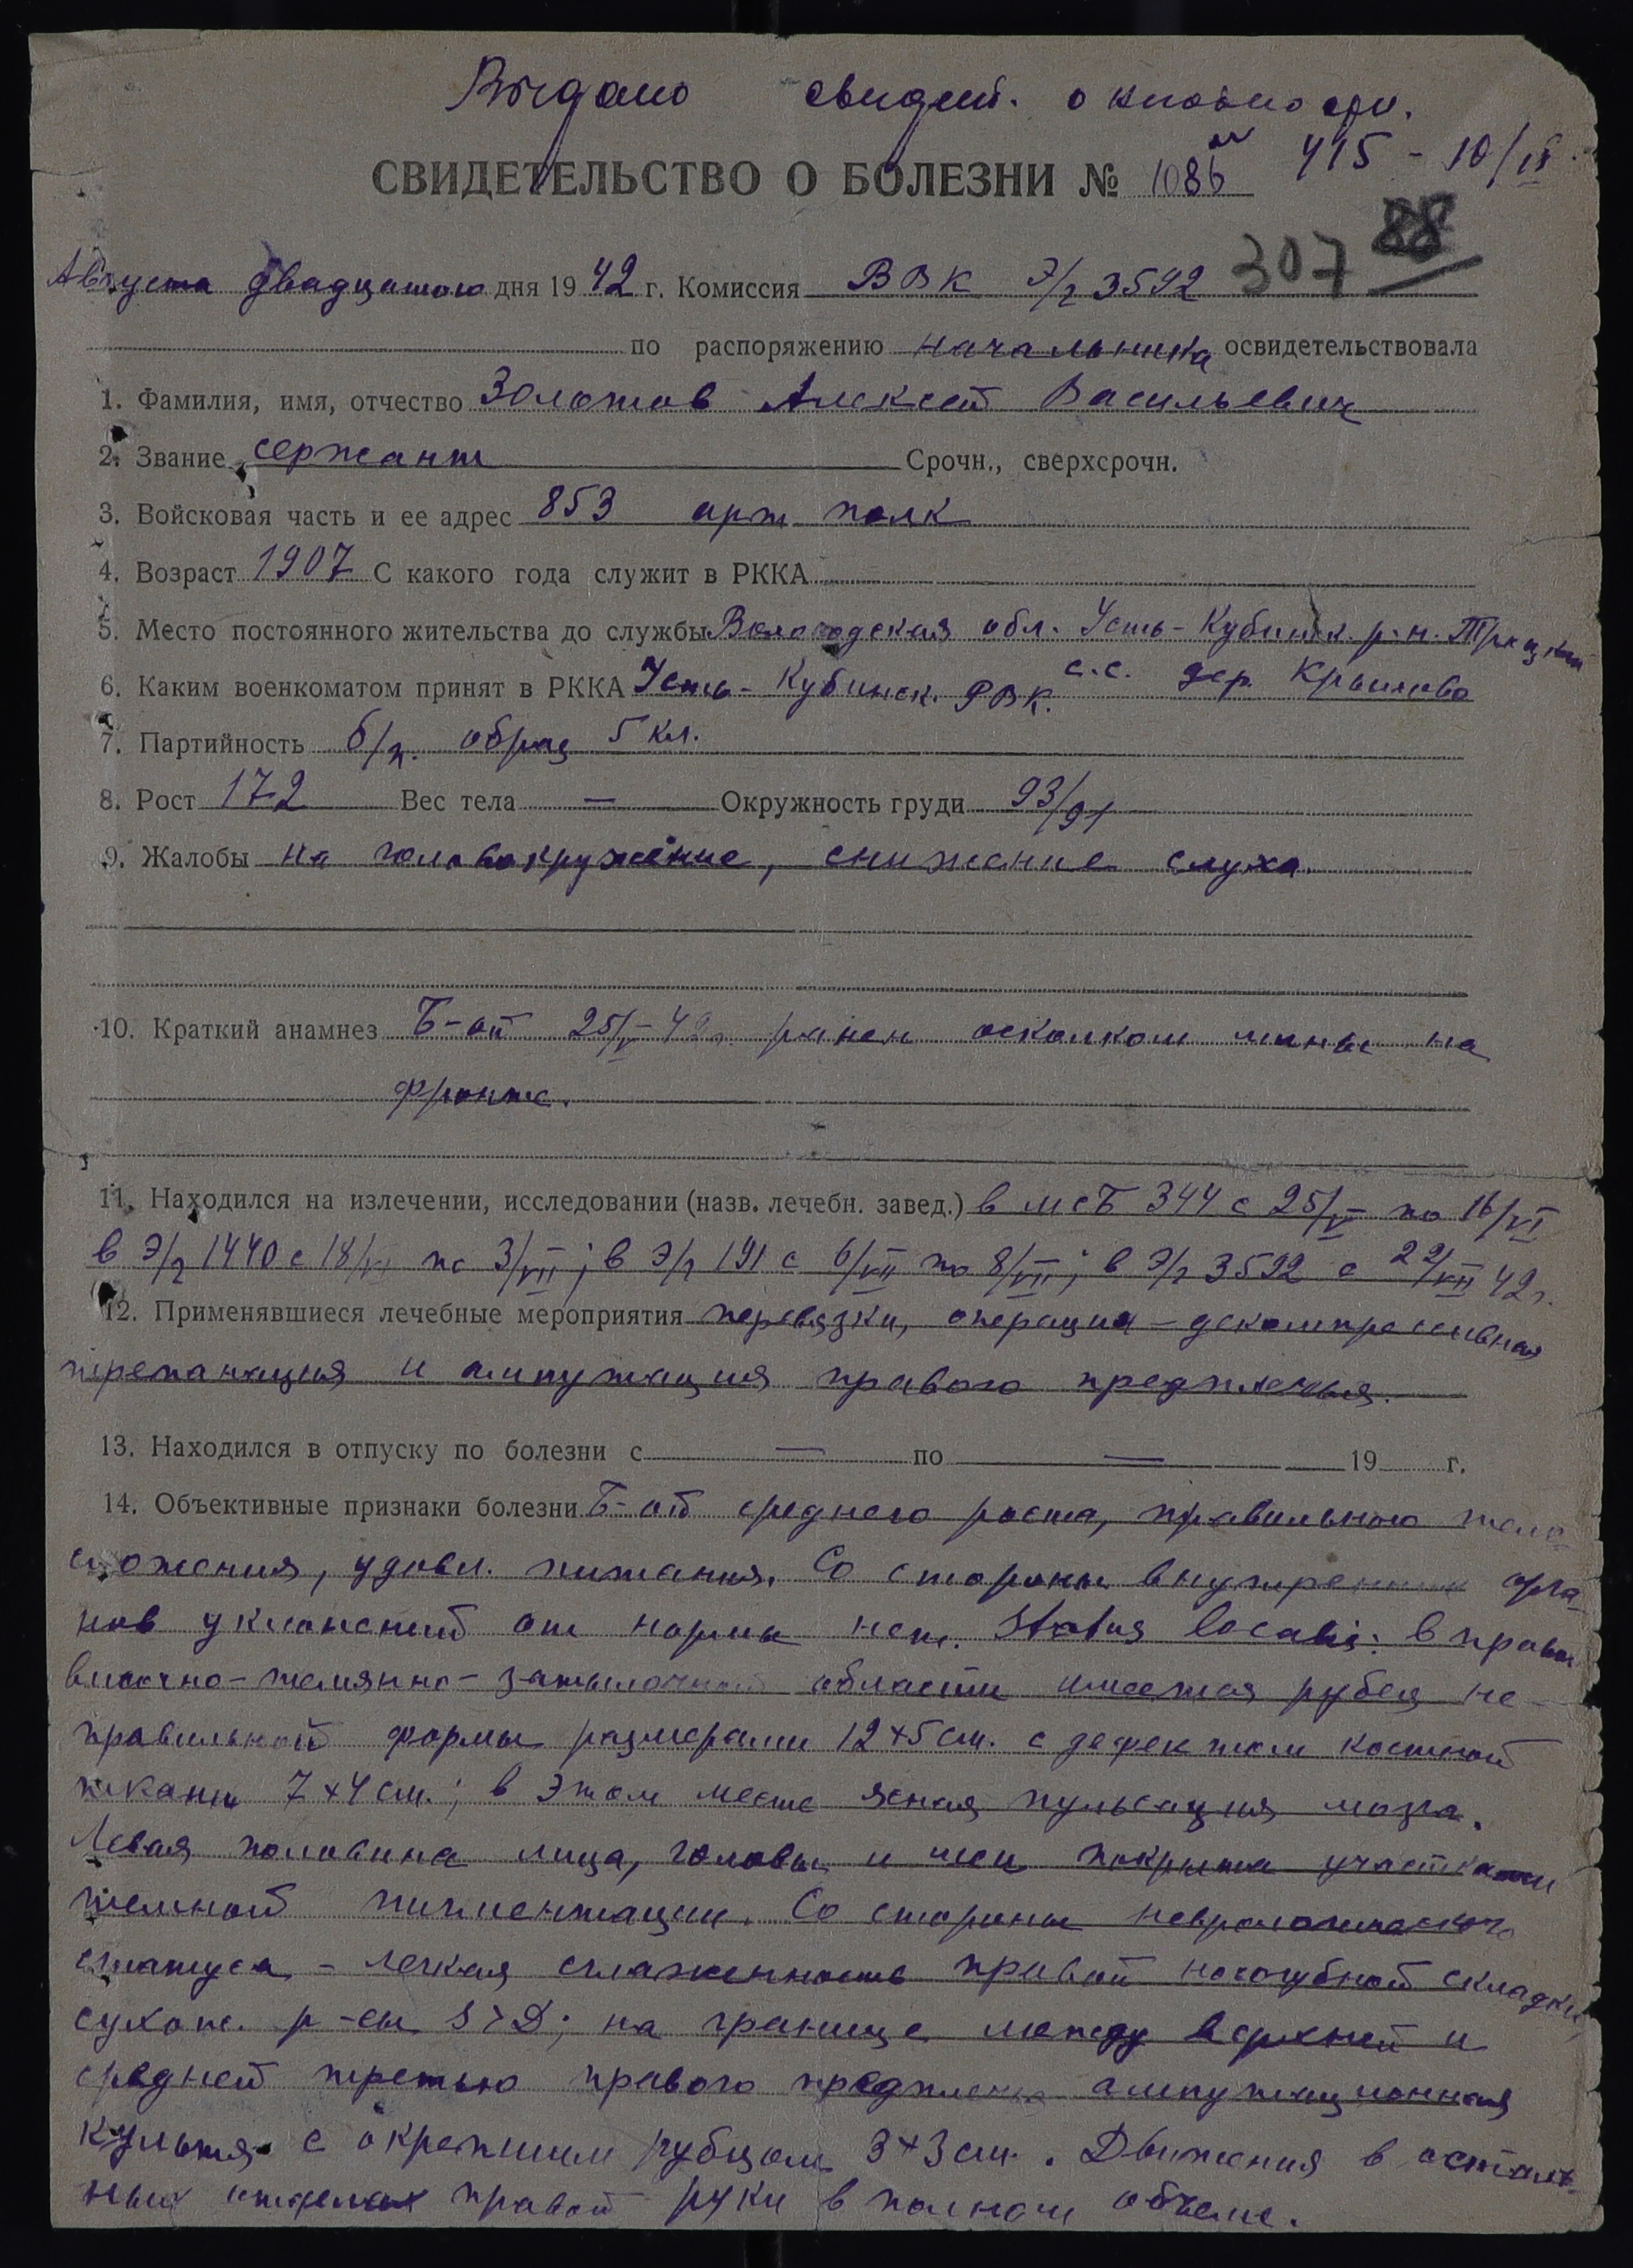 Выдано свидет.
415 - 10/IX
СВИДЕТЕЛЬСТВО О БОЛЕЗНИ № 1086
307 88
Августа двадцатого дня 1942 г. Комиссия ВВК Э/г 3592
по распоряжению начальника освидетельствовала
1. Фамилия, имя, отчество Золотов Алексей Васильевич
2. Звание сержант Срочн., сверхсрочн.
3. Войсковая часть и ее адрес 853 арт полк
4. Возраст 1907 С какого года служит в РККА
5. Место постоянного жительства до службы Вологодская обл. Усть-Кубинск. р-н. Троцкий
с.с. дер. Крылово
6. Каким военкоматом принят в РККА Усть-Кубинск. РВК.
7. Партийность б/п. образ 5 кл.
8. Рост 172 Вес тела — Окружность груди 93/91
9. Жалобы на головокружение, снижение слуха.
10. Краткий анамнез Б-ой 25/V-42г. ранен осколком мины на
фронте.
11. Находился на излечении, исследовании (назв. лечебн. завед.) в МСБ 344 с 25/V по 16/VI
в Э/г 1440 с 18/VI по 3/VII; в Э/г 191 с 6/VII по 8/VII; в Э/г 3592 с 22/VII 42г.
12. Применявшиеся лечебные мероприятия перевязки, операция – декомпрессивная
трепанация и ампутация правого предплечья.
13. Находился в отпуску по болезни с — по — 19 г.
14. Объективные признаки болезни Б-ой среднего роста, правильного тело
сложения, удовл. питания. Со стороны внутренних орга-
нов уклонений от нормы нет. Status localis: в правой
височно-темянно-затылочной области имеется рубец не-
правильной формы размерами 12×5 см. с дефектом костной
ткани 7×4 см.; в этом месте ясная пульсация мозга.
Левая половина лица, головы и шеи покрыта участками
темной пигментации. Со стороны неврологического
статуса – легкая сглаженность правой носогубной складки,
сухож. р-сы S>D; на границе между верхней и
средней третью правого предплечья ампутационная
культя с окрепшим рубцом 3×3 см. Движения в осталь-
ных отделах правой руки в полном объеме.